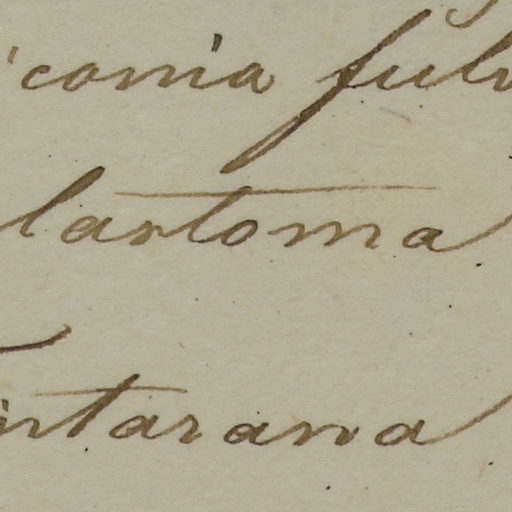 iconia fulv
lastoma
intarana